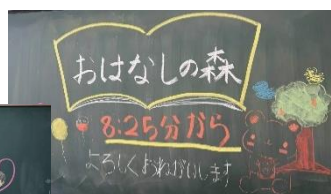 おはなしの森
8:25分から
よろしくおねがいします